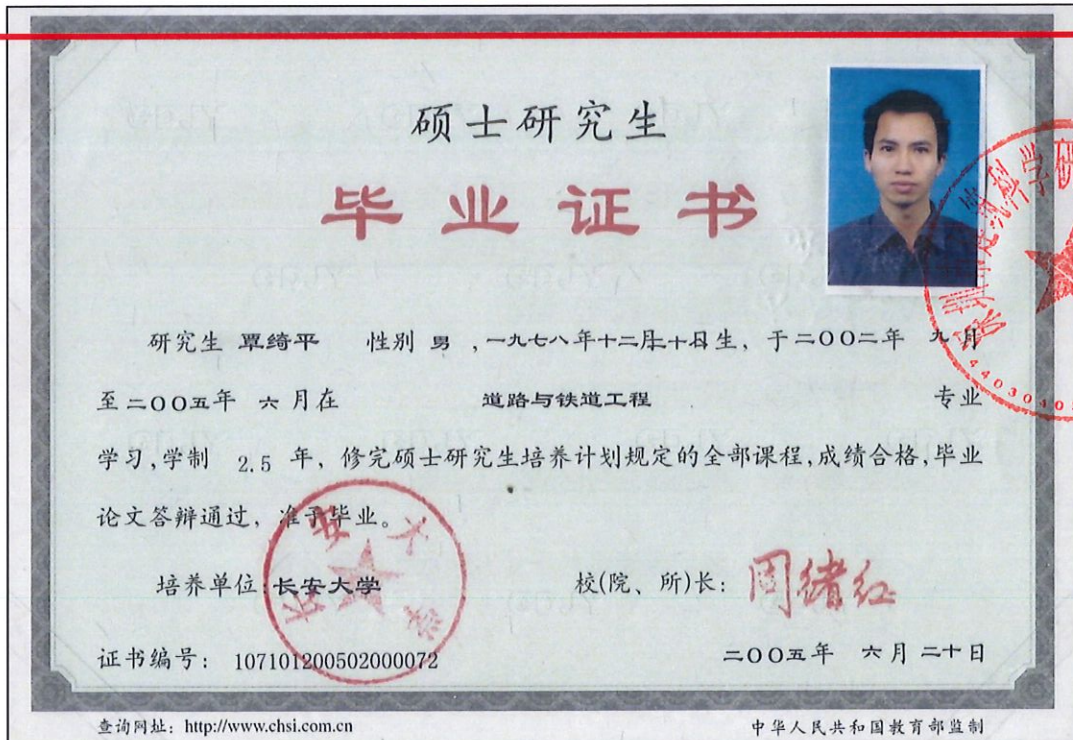 硕士研究生
毕业证书
研究生 覃绮平 性别 男 ,一九七八年十二月二十日生，于二〇〇二年 九月
至二〇〇五年 六月在 道路与铁道工程 专业
学习,学制 2.5 年，修完硕士研究生培养计划规定的全部课程,成绩合格,毕业
论文答辩通过，准予毕业。
培养单位:长安大学
校(院、所)长: 周绪红
证书编号: 107101200502000072
二〇〇五年 六月 二十日
查询网址: http://www.chsi.com.cn
中华人民共和国教育部监制
长安大学
深圳市建筑科学研